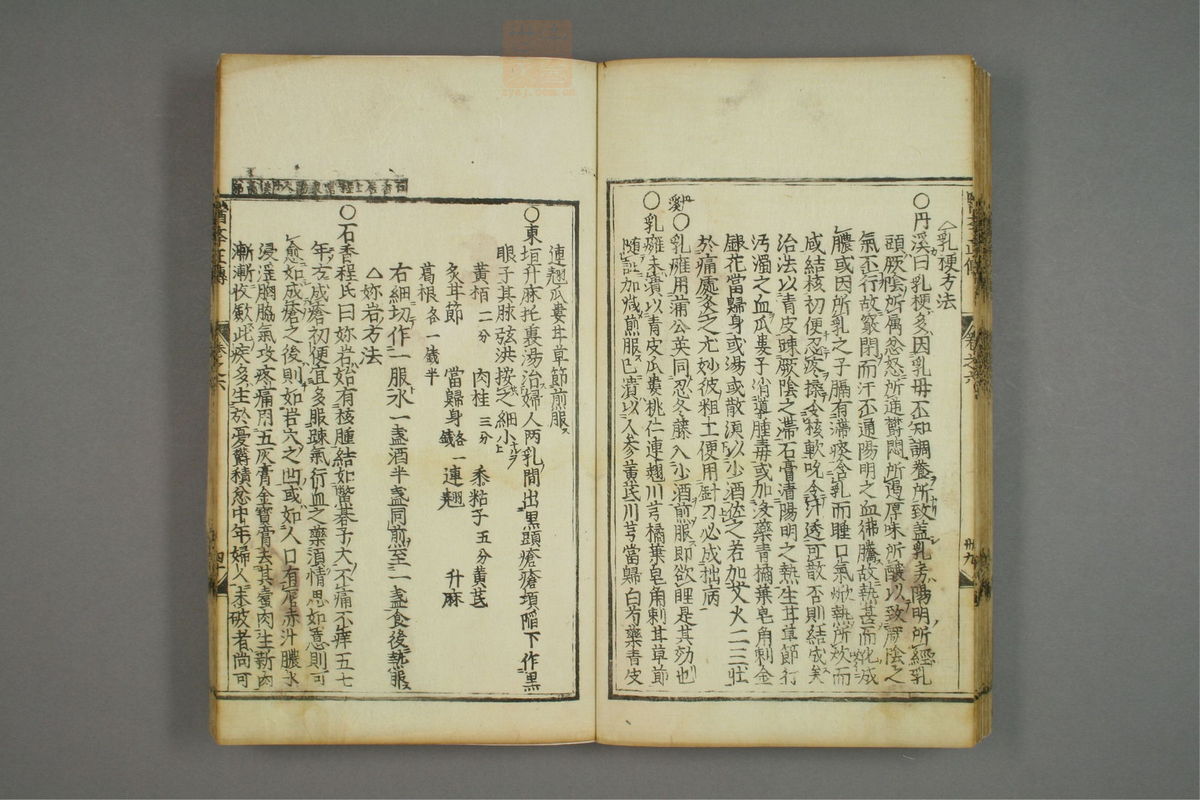 乳硬方法
○丹溪曰乳硬多因乳母不知調養所致盖乳房陽明所經乳
頭厥陰所属忿怒所逆鬱悶所遏厚味所釀以致厥陰之
氣不行故竅閉而汁不通陽明之血沸騰故熱甚而化成
膿或因所乳之子膈有滯痰含乳而睡口氣焮熱所吹而
成結核初便忍疼揉令核軟吮令汁透可散否則結成矣
治法以青皮疎厥陰之滯石膏清陽明之熱生甘草節行
汚濁之血瓜蔞子消導腫毒或加没藥青橘葉皂角刺金
銀花當歸身或湯或散須以少酒佐之若加艾火二三壯
於痛處灸之尤妙彼粗工便用針刀必成拙病
溪○乳癰用蒲公英同忍冬藤入少酒煎服即欲睡是其効也
○乳癰未潰以青皮瓜蔞桃仁連翹川芎橘葉皂角刺甘草節
随証加减煎服已潰以人參黄芪川芎當歸白芍藥青皮
連翹瓜蔞甘草節煎服
○東垣升麻托裏湯治婦人两乳間出黒頭瘡瘡頂陷下作黒
眼子其脉弦洪按之細小
黄栢二分 肉桂三分 黍粘子五分黄芪
炙甘節 當歸身各一錢 連翹 升麻
葛根各一錢半
右細切作一服水一盞酒半盞同煎至一盞食後熱服
△妳岩方法
○石香程氏曰妳岩始有核腫結如鱉棊子大不痛不痒五七
年方成瘡初便宜多服疎氣行血之藥須情思如意則可
愈如成瘡之後則如岩穴之凹或如人口有唇赤汁膿水
浸淫胸脇氣攻疼痛用五灰膏金寳膏去其蠹肉生新肉
漸漸收歛此疾多生於憂鬱積忿中年婦人未破者尚可